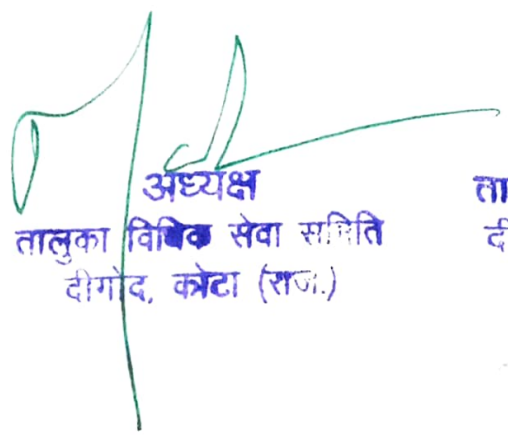 अध्यक्ष
तालुका विधिक सेवा समिति
दीगोद, कोटा (राज.)
ता
दी